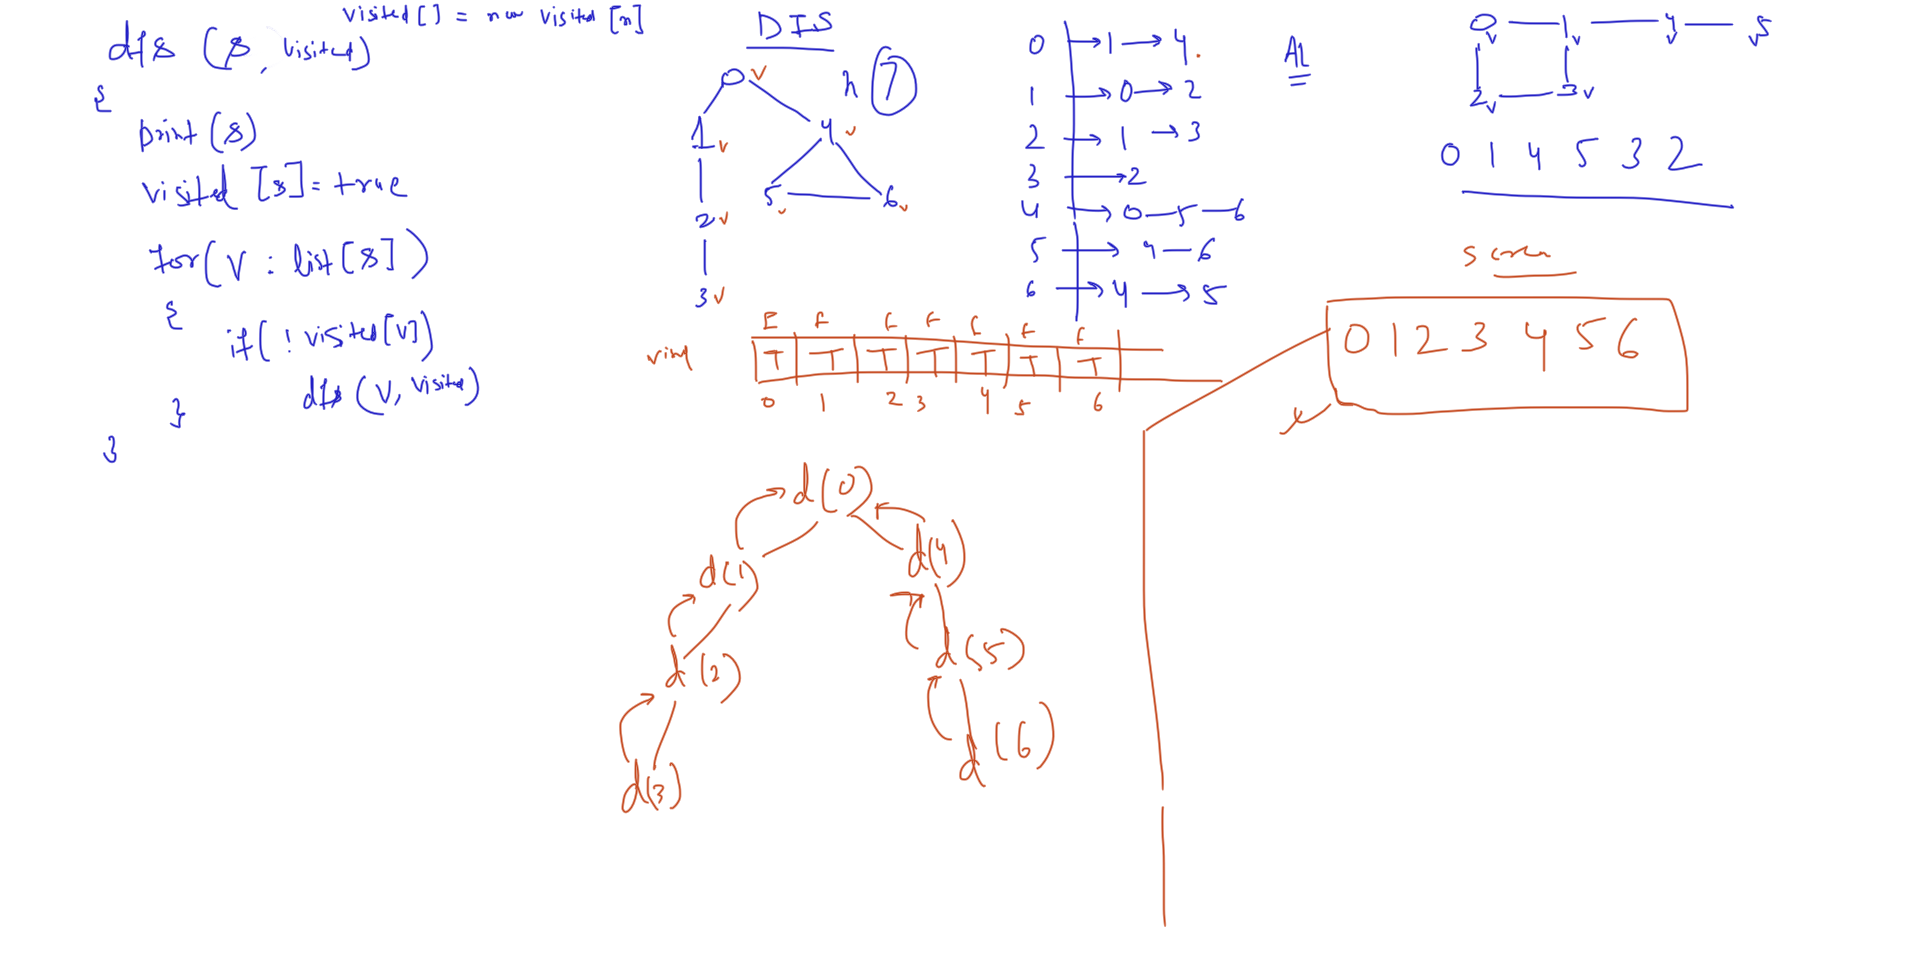 visited[] = new visited[n]
dfs (s, visited)
{
print(s)
visited [s]=true
for(v : list[s])
{
if( ! visited[v])
dfs (v, visited)
}
}
DFS
n 7
0
1
4
2
5
6
3
0 → 1 → 4.
1 → 0 → 2
2 → 1 → 3
3 → 2
4 → 0 — 5 — 6
5 → 4 — 6
6 → 4 → 5
AL
0 1 4 5
2 3
0 1 4 5 3 2
F F F F F F F
T T T T T T T
0 1 2 3 4 5 6
screen
0 1 2 3 4 5 6
d(0)
d(1) d(4)
d(2) d(5)
d(3) d(6)